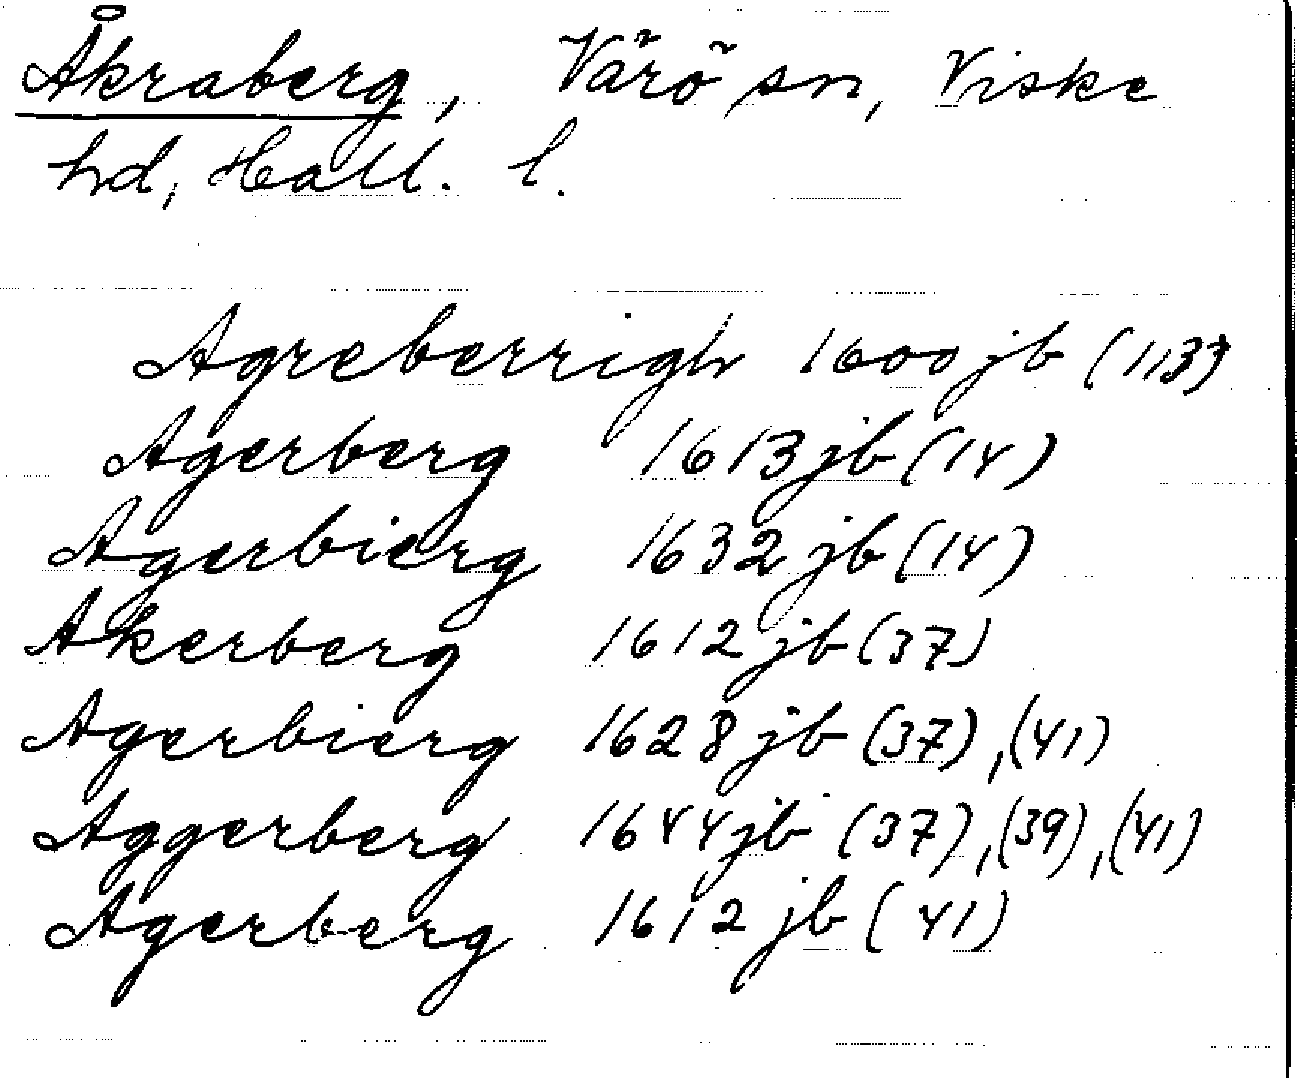 Åkraberg, Värö sn, Viske
hd, Hall. l.
Agreberrigh 1600 jb (113)
Agerberg 1613 jb (14)
Agerbierg 1632 jb (14)
Akerberg 1612 jb (37)
Agerbierg 1628 jb (37), (41)
Aggerberg 1644 jb (37), (39), (41)
Agerberg 1612 jb (41)